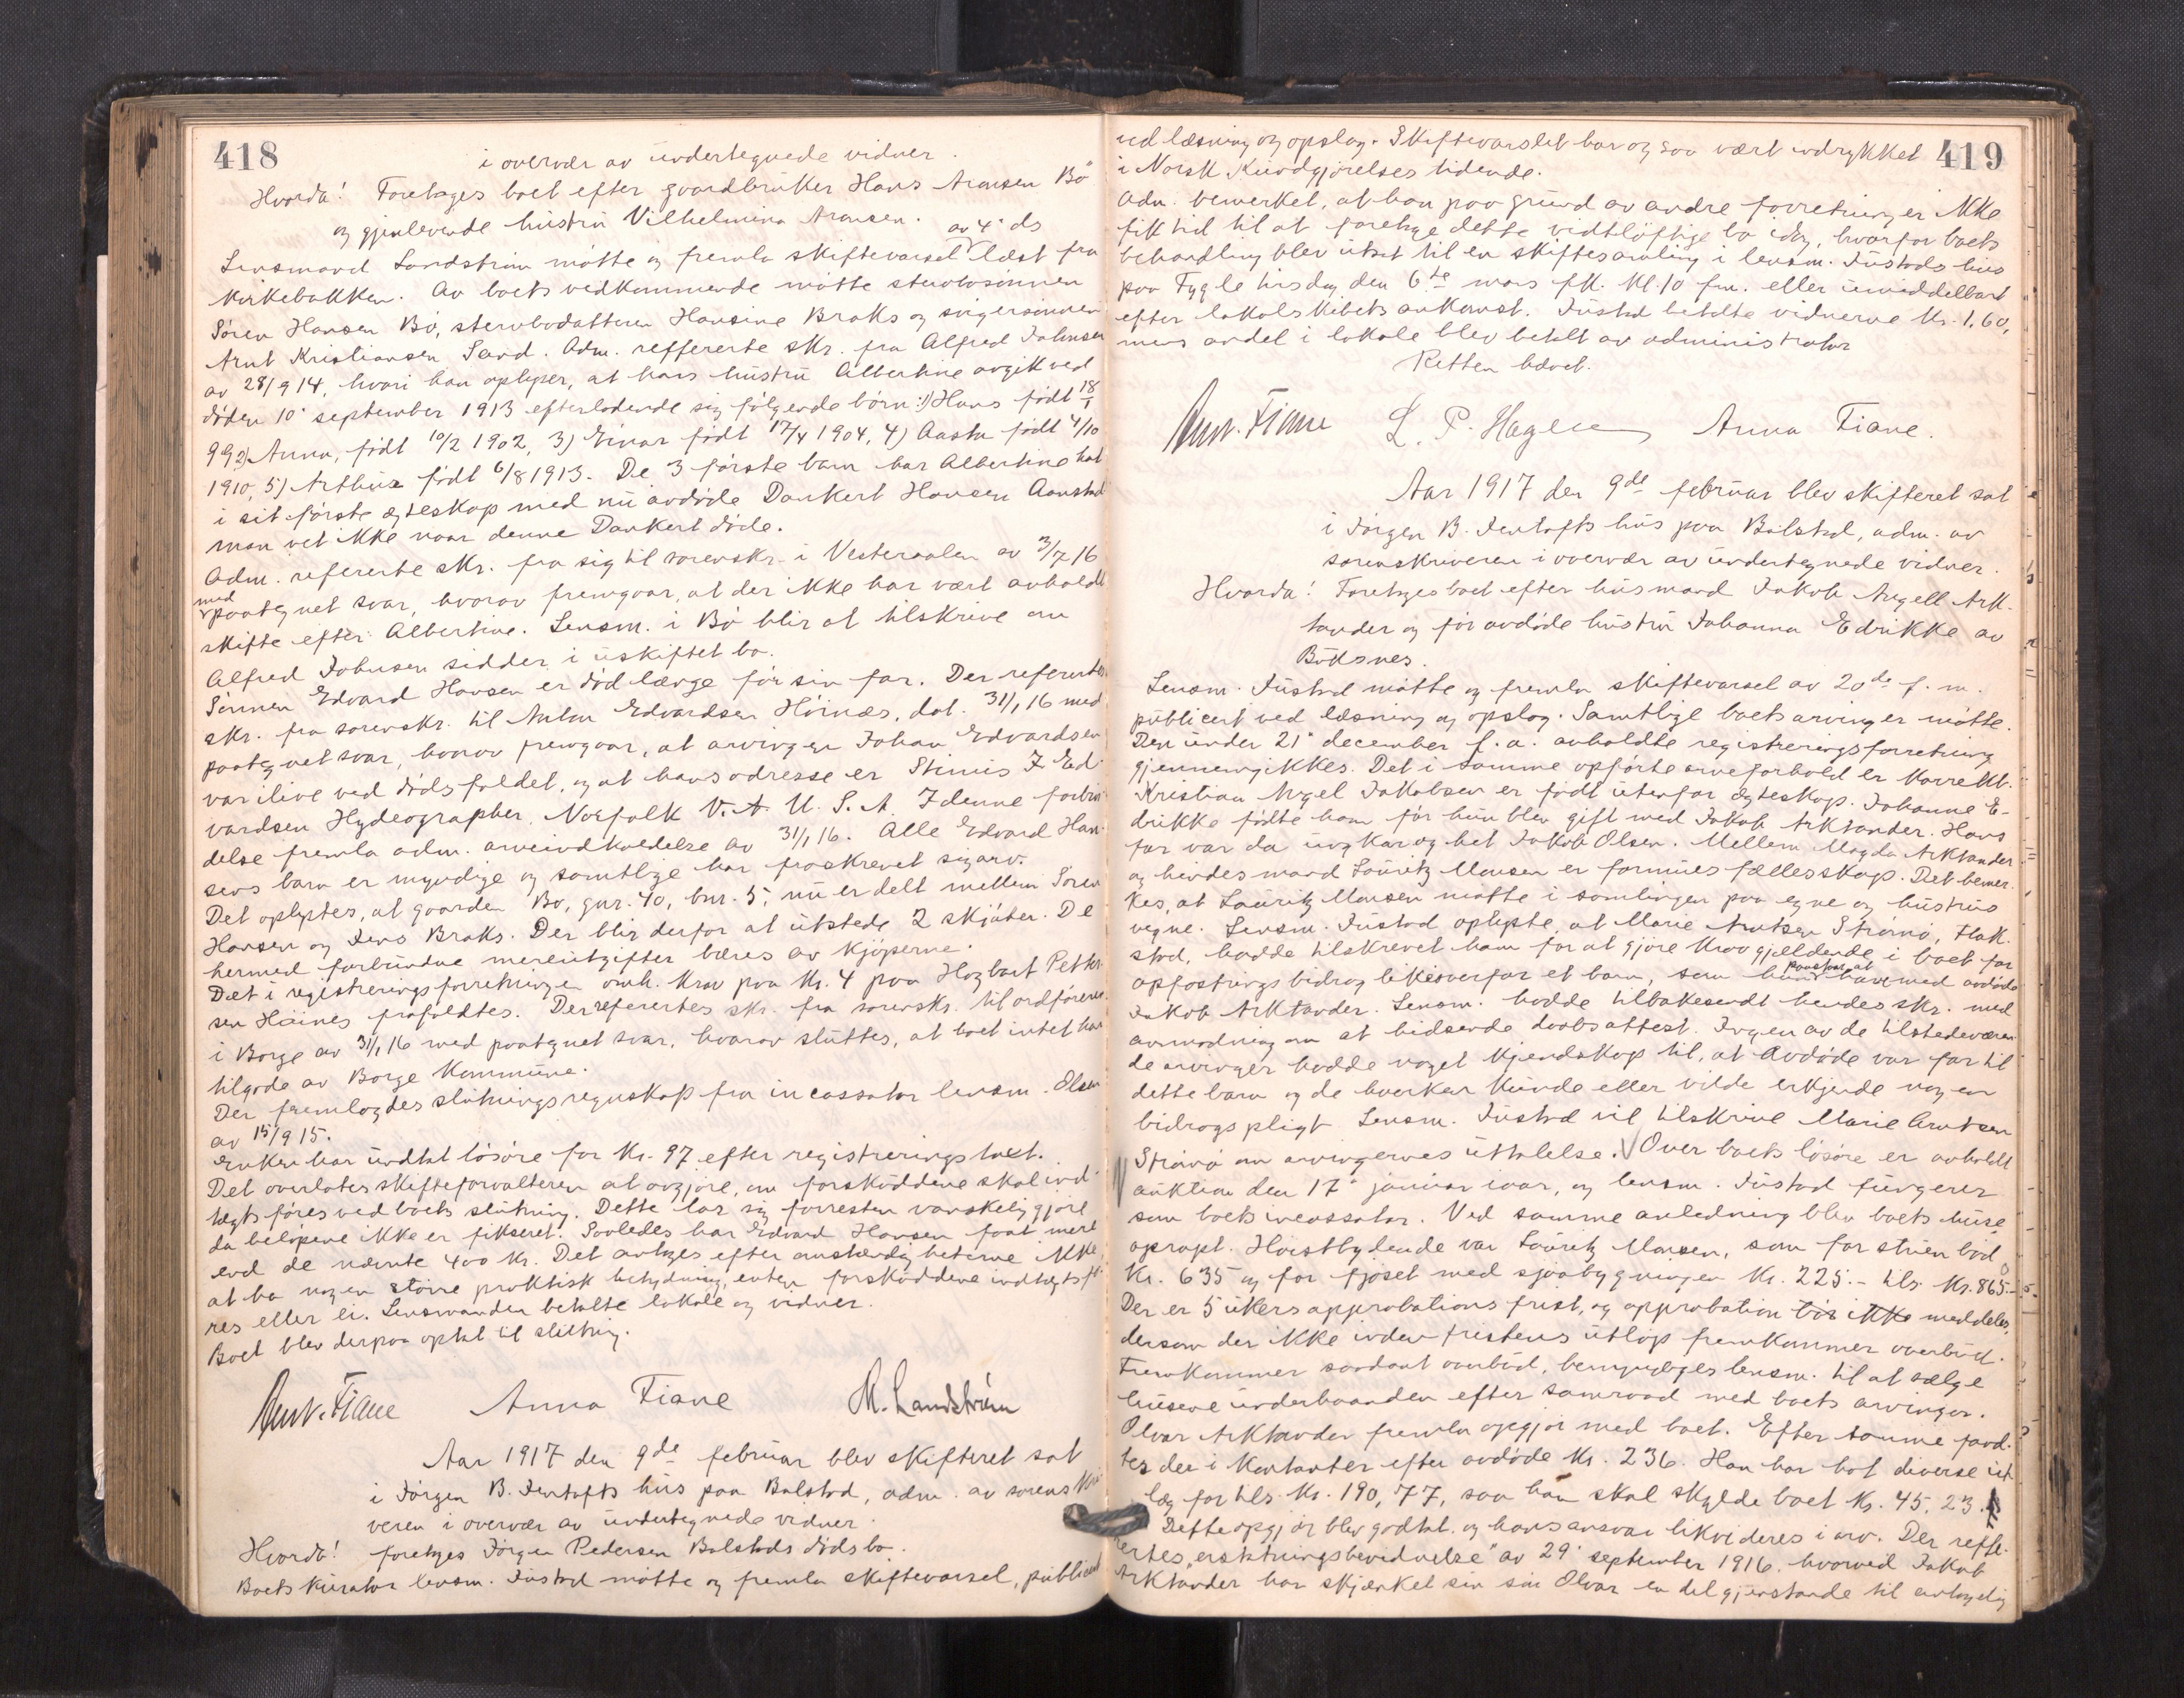 418
i overvær av undertegnede vidner.
Hvorda! Foretages boet efter gaardbruker Hans Aronsen Bö
og gjenlevende hustru Vilhelmina Aronsen.
av 4' ds
Lensmand Landström mötte og fremla skiftevarsel læst fra
kirkebakken. Av boets vedkommende mötte stervbosönnen
Sören Hansen Bö, stervbodatteren Hansine Braks og svigersönnen
Arnt Kristiansen Sand. Adm. reffererte skr. fra Alfred Johnsen
av 28/9 14, hvori han oplyser, at hans hustru Albertine avgik ved
döden 10' september 1913 efterladende sig fölgende börn: 1) Hans födt 18/1
99 2) Anna, födt 10/2 1902, 3) Einar födt 17/4 1904, 4) Aasta födt 4/10
1910, 5) Arthur födt 6/8 1913. De 3 förste barn har Albertine hat
i sit förste egteskap med nu avdöde Dankert Hansen Aanstad
man vet ikke naar denne Dankert döde.
Adm. refererte skr. fra sig til sorenskr. i Vesteraalen av 3/7 16
med
paategnet svar, hvorav fremgaar, at der ikke har vært avholdt
skifte efter Albertine. Lensm. i Bö blir at tilskrive om
Alfred Johnsen sidder i uskiftet bo.
Sönnen Edvard Hansen er död længe för sin far. Der refertes
skr. fra sorenskr. til Anton Edvardsen Höinæs, dat. 31/1 16 med
paategnet svar, hvorav fremgaar, at arvingen Johan Edvardsen
var ilive ved dödsfaldet, og at hans adresse er Stinius J. Ed-
vardsen Hydeographer Norfolk V. A. U. S. A. I denne forbin-
delse fremla adm. arveindkaldelse av 31/1 16. Alle Edvard Han-
sens barn er myndige og samtlige har fraskrevet sig arv.
Det oplystes, at gaarden Bö, gnr. 40, bnr. 5, nu er delt mellem Sören
Hansen og Jens Braks. Der blir derfor at utstede 2 skjöter. De
hermed forbundne merutgifter bæres av kjöperne.
Det i registreringsforretningen omh. krav paa kr. 4 paa Hagbart Petter-
sen Höines frafaldtes. Der refertes skr. fra sorenskr. til ordföreren
i Borge av 31/1 16 med paategnet svar, hvorav sluttes, at boet intet har
tilgode av Borge kommune.
Der fremlagdes slutningsregnskap fra incassator lensm. Olsen
av 15/9 15.
Enken har uttat lösöre for kr. 97 efter registreringstaxt.
Det overlates skifteforvalteren at avgjöre, om forskuddene skal ind-
tægtsföres ved boets slutning. Dette lar sig forresten vanskelig gjöre
da belöpene ikke er fikseret. Saaledes har Edvard Hansen faat mere
end de nævnte 400 kr. Det antages efter omstændigheterne ikke
at ha nogen större praktisk betydning, enten forskuddene indtægtsfö-
res eller ei. Lensmanden betalte lokale og vidner.
Boet blev derpaa optat til slutning.
Amt. Fiane Anna Fiane M. Landström
Aar 1917 den 9de februar blev skifteret sat
i Jörgen B. Jentofts hus paa Balstad, adm. av sorenskri-
veren i overvær av undertegnede vidner.
Hvorda! foretages Jörgen Pedersen Balstads dödsbo.
Boets kurator lensm. Justad mötte og fremla skiftevarsel, publicert
419
ved læsning og opslag. Skiftevarslet har og saa vært indrykket
i Norsk Kundgjörelses tidende.
Adm. bemerket, at han paa grund av andre forretninger ikke
fik tid til at foretage dette vidtlöftige bo idag, hvorfor boets
behandling blev utsat til en skiftesamling i lensm. Justads hus
paa Fygle tirsdag den 6te mars fk. kl. 10 fm. eller umiddelbart
efter lokalskibets ankomst. Justad betalte vidnerne kr. 1,60,
mens andel i lokale blev betalt av administrator
Retten hævet.
Amt. Fiane L. P. Hagen Anna Fiane.
Aar 1917 den 9de februar blev skifteret sat
i Jörgen B. Jentofts hus paa Balstad, adm. av
sorenskriveren i overvær av undertegnede vidner.
Hvorda! Foretages boet efter husmand Jakob Angell Ark-
tander og för avdöde hustru Johanna Edrikke av
Böksnes.
Lensm. Justad mötte og fremla skiftevarsel av 20de f. m.
publicert ved læsning og opslag. Samtlige boets arvinger mötte.
Den under 21' december f. a. avholdte registreringsforretning
gjennemgikkes. Det i samme opförte arveforhold er korrekt.
Kristian Angel Jakobsen er födt utenfor egteskap. Johanne E-
drikke födte ham för hun blev gift med Jakob Arktander. Hans
far var da ungkar og het Jakob Olsen. Mellem Magda Arktander
og hendes mand Lauritz Monsen er formuesfællesskap. Det bemer-
kes, at Lauritz Monsen mötte i samlingen paa egne og hustrus
vegne. Lensm. Justad oplyste, at Marie Arntsen Strönö, Hak-
stad, hadde tilskrevet ham for at gjöre krav gjældende i boet for
opfostringsbidrag likeoverfor et barn, som hun paastaar at have med avdöde
Jakob Arktander. Lensm. hadde tilbakesendt hendes skr. med
anmodning om at bidsende daabsattest. Ingen av de tilstedeværen-
de arvinger hadde noget kjendskap til, at avdöde var far til
dette barn og de hverken kunde eller vilde erkjende nogen
bidragspligt. Lensm. Justad vil tilskrive Marie Arntsen
Strönö om arvingernes uttalelse. Over boets lösöre er avholdt
auktion den 17' januar iaar, og lensm. Justad fungerer
som boets incassator. Ved samme anledning blev boets huse
opropt. Höistbydende var Lauritz Monsen, som for stuen böd
Kr. 635 og for fjöset med sjaabygningen Kr. 225.- tils. Kr. 865.-
Der er 5 ukers approbations frist, og approbation bör ikke meddeles,
dersom der ikke inden fristens utlöp fremkommer overbud.
Fremkommer saadant overbud, bemyndiges lensm. til at sælge
husene underhaanden efter samraad med boets arvinger.
Olvar Arktander fremla opgjör med boet. Efter samme fand-
tes der i kontanter efter avdöde kr. 236. Han har hat diverse ut-
læg for tils. kr. 190,77, saa han skal skylde boet kr. 45,23.
Dette opgjör blev godtat og hans ansvar likvideres i arv. Der reffe-
rertes "erstatningsbevidnelse" av 29' september 1916. hvorved Jakob
Arktander har skjænket sin sön Olvar en del gjenstande til avbetaling